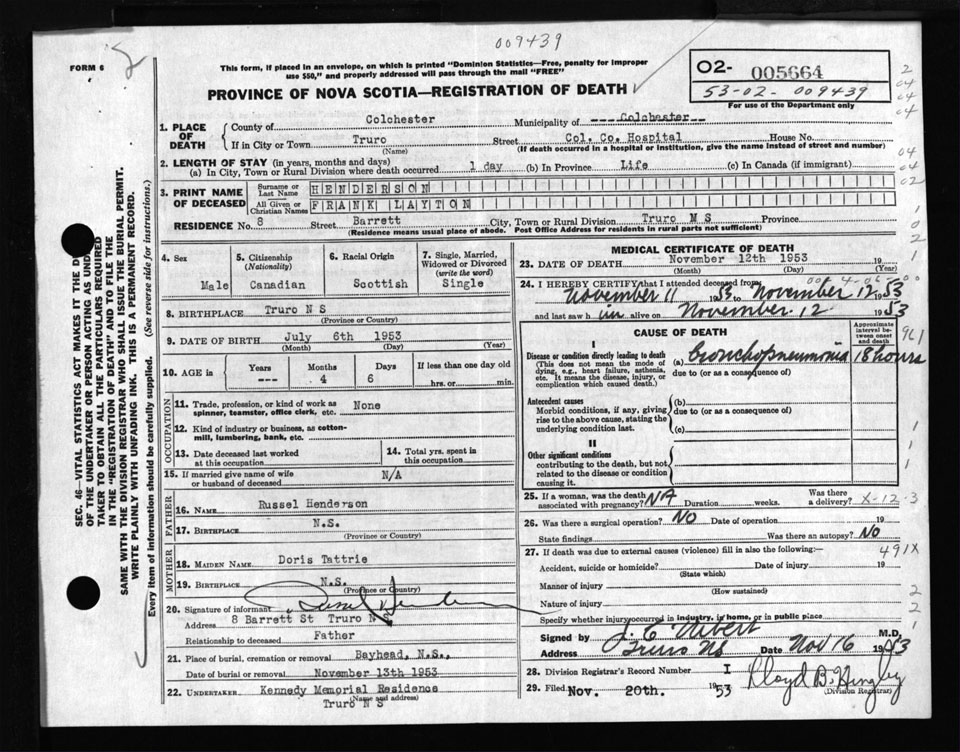 009439
FORM 6
This form, if placed in an envelope, on which is printed "Dominion Statistics—Free, penalty for improper
use $50," and properly addressed will pass through the mail "FREE"
PROVINCE OF NOVA SCOTIA—REGISTRATION OF DEATH
O2- 005664
53-02-009439
For use of the Department only
1. PLACE OF DEATH
County of Colchester Municipality of ---Colchester--
If in City or Town Truro Street Col. Co. Hospital House No.
(Name) (If death occurred in a hospital or institution, give the name instead of street and number)
2. LENGTH OF STAY (in years, months and days)
(a) In City, Town or Rural Division where death occurred 1 day (b) In Province Life (c) In Canada (if immigrant)
3. PRINT NAME OF DECEASED
Surname or Last Name HENDERSON
All Given or Christian Names FRANK LAYTON
RESIDENCE No. 8 Street Barrett City, Town or Rural Division Truro N S Province
(Residence means usual place of abode. Post Office Address for residents in rural parts not sufficient)
4. Sex Male
5. Citizenship (Nationality) Canadian
6. Racial Origin Scottish
7. Single, Married, Widowed or Divorced (write the word) Single
8. BIRTHPLACE Truro N S
(Province or Country)
9. DATE OF BIRTH July 6th 1953
(Month) (Day) (Year)
10. AGE in Years --- Months 4 Days 6 If less than one day old hrs. or min.
OCCUPATION
11. Trade, profession, or kind of work as spinner, teamster, office clerk, etc. None
12. Kind of industry or business, as cotton-mill, lumbering, bank, etc.
13. Date deceased last worked at this occupation
14. Total yrs. spent in this occupation
15. If married give name of wife or husband of deceased N/A
FATHER
16. NAME Russel Henderson
17. BIRTHPLACE N.S.
(Province or Country)
MOTHER
18. MAIDEN NAME Doris Tattrie
19. BIRTHPLACE N.S.
(Province or Country)
20. Signature of informant Russel Henderson
Address 8 Barrett St Truro N S
Relationship to deceased Father
21. Place of burial, cremation or removal Bayhead, N.S.,
Date of burial or removal November 13th 1953
22. UNDERTAKER Kennedy Memorial Residence
(Name and Address)
Truro N S
MEDICAL CERTIFICATE OF DEATH
23. DATE OF DEATH November 12th 1953 19
(Month) (Day) (Year)
24. I HEREBY CERTIFY that I attended deceased from
November 11 1953 to November 12 1953
and last saw him alive on November 12 1953
CAUSE OF DEATH
Approximate interval between onset and death
I
Disease or condition directly leading to death
(This does not mean the mode of dying, e.g., heart failure, asthenia, etc. It means the disease, injury, or complication which caused death.)
(a) Bronchopneumonia 18 hours
due to (or as a consequence of)
Antecedent causes
Morbid conditions, if any, giving rise to the above cause, stating the underlying condition last.
(b)
due to (or as a consequence of)
(c)
II
Other significant conditions
contributing to the death, but not related to the disease or condition causing it.
25. If a woman, was the death associated with pregnancy? NA Duration weeks. Was there a delivery? X-12-3
26. Was there a surgical operation? NO Date of operation 19
State findings Was there an autopsy? NO
27. If death was due to external causes (violence) fill in also the following:— 491X
Accident, suicide or homicide? Date of injury 19
(State which)
Manner of injury
(How sustained)
Nature of injury
Specify whether injury occurred in industry, in home, or in public place
Signed by M.D.
Address Truro NS Date Nov 16 1953
28. Division Registrar's Record Number I
29. Filed Nov. 20th. 1953
(Division Registrar)
SEC. 46—VITAL STATISTICS ACT MAKES IT THE
OF THE UNDERTAKER OR PERSON ACTING AS UNDER
TAKER TO OBTAIN ALL THE PARTICULARS REQUIRED
IN THE "REGISTRATION OF DEATH" AND TO FILE THE
SAME WITH THE DIVISION REGISTRAR WHO SHALL ISSUE THE BURIAL PERMIT.
WRITE PLAINLY WITH UNFADING INK. THIS IS A PERMANENT RECORD.
Every item of information should be carefully supplied. (See reverse side for instructions.)